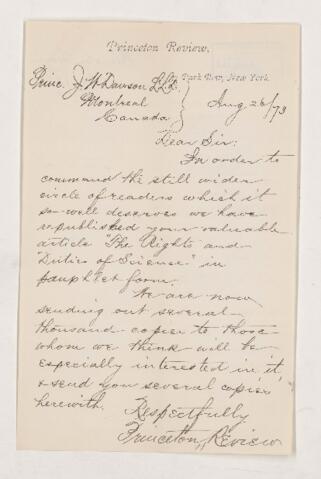 Princeton Review.
Park Row, New York
Princ. J. W. Dawson LL.D.
Montreal
Canada
Aug 26/73
Dear Sir:
In order to
command the still wider
circle of readers which it
so well deserves we have
republished your valuable
article "The Rights and
Duties of Science" in
pamphlet form.
We are now
sending out several
thousand copies to those
whom we think will be
especially interested in it,
& send you several copies
herewith.
Respectfully
Princeton Review